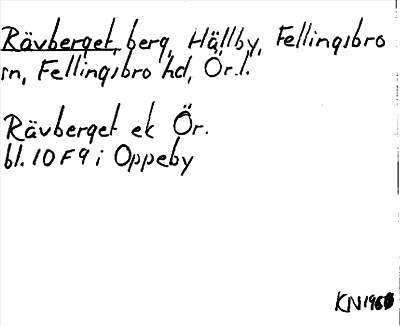 Rävberget, berg, Hällby, Fellingsbro
sn, Fellingsbro hd, Ör.l.
Rävberget ek Ör.
bl. 10 F 9 i Oppeby